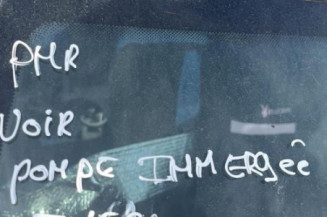 PMR
VOIR
POMPE IMMERGêe